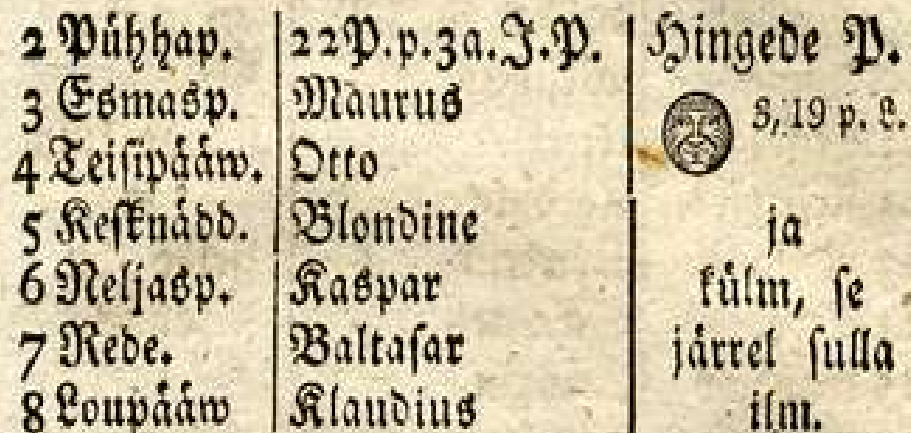 2 Pühhap. 22 P. p. 3 a. J. P. Hingede P.
3 Esmasp. Maurus 8, 19 p. L.
4 Teisipääw. Otto
5 Kesknädd. Blondine ja
6 Neljasp. Kaspar külm, se
7 Rede. Baltasar järrel sulla
8 Loupääw Klaudius ilm.